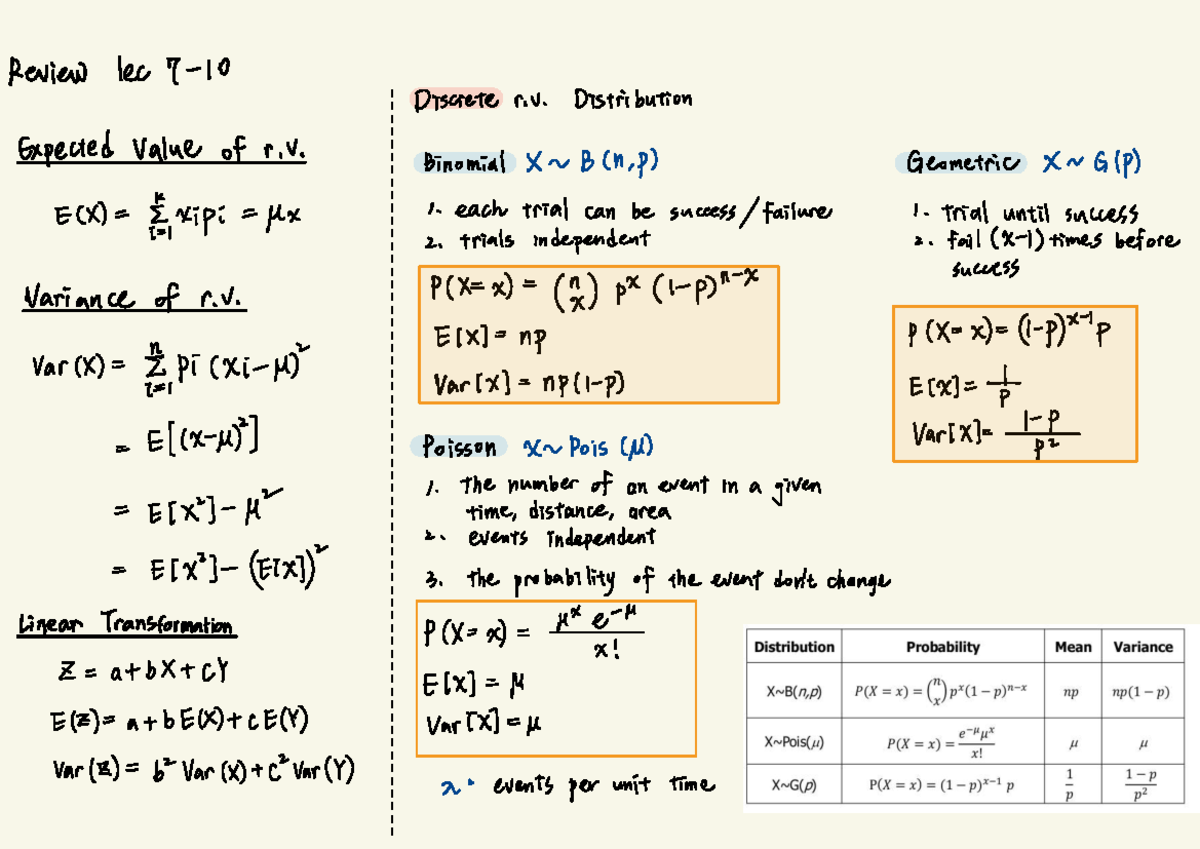 Review lec 7-10
Expected Value of r.v.
E(X) = Σᵢ₌₁ᵏ xipi = μx
Variance of r.v.
Var(X) = Σᵢ₌₁ⁿ pi (xi-μ)²
= E[(x-μ)²]
= E[X²] - μ²
= E[X²] - (E[X])²
Linear Transformation
Z = a+bX+cY
E(Z) = a+bE(X)+cE(Y)
Var(Z) = b² Var(X)+c² Var(Y)
Discrete r.v. Distribution
Binomial X~B(n,p)
1. each trial can be success/failure
2. trials independent
P(X=x) = (n x) pˣ (1-p)ⁿ⁻ˣ
E[X] = np
Var[X] = np(1-p)
Poisson X~Pois(μ)
1. the number of an event in a given
time, distance, area
2. events independent
3. the probability of the event don't change
P(X=x) = μˣ e⁻μ / x!
E[X] = μ
Var[X] = μ
λ: events per unit time
Geometric X~G(p)
1. trial until success
2. fail (x-1) times before
success
P(X=x) = (1-p)ˣ⁻¹ p
E[X] = 1/p
Var[X] = (1-p)/p²
Distribution Probability Mean Variance
X~B(n,p) P(X = x) = (n x) pˣ(1 − p)ⁿ⁻ˣ np np(1 − p)
X~Pois(μ) P(X = x) = e⁻μμˣ / x! μ μ
X~G(p) P(X = x) = (1 − p)ˣ⁻¹ p 1/p (1 − p)/p²